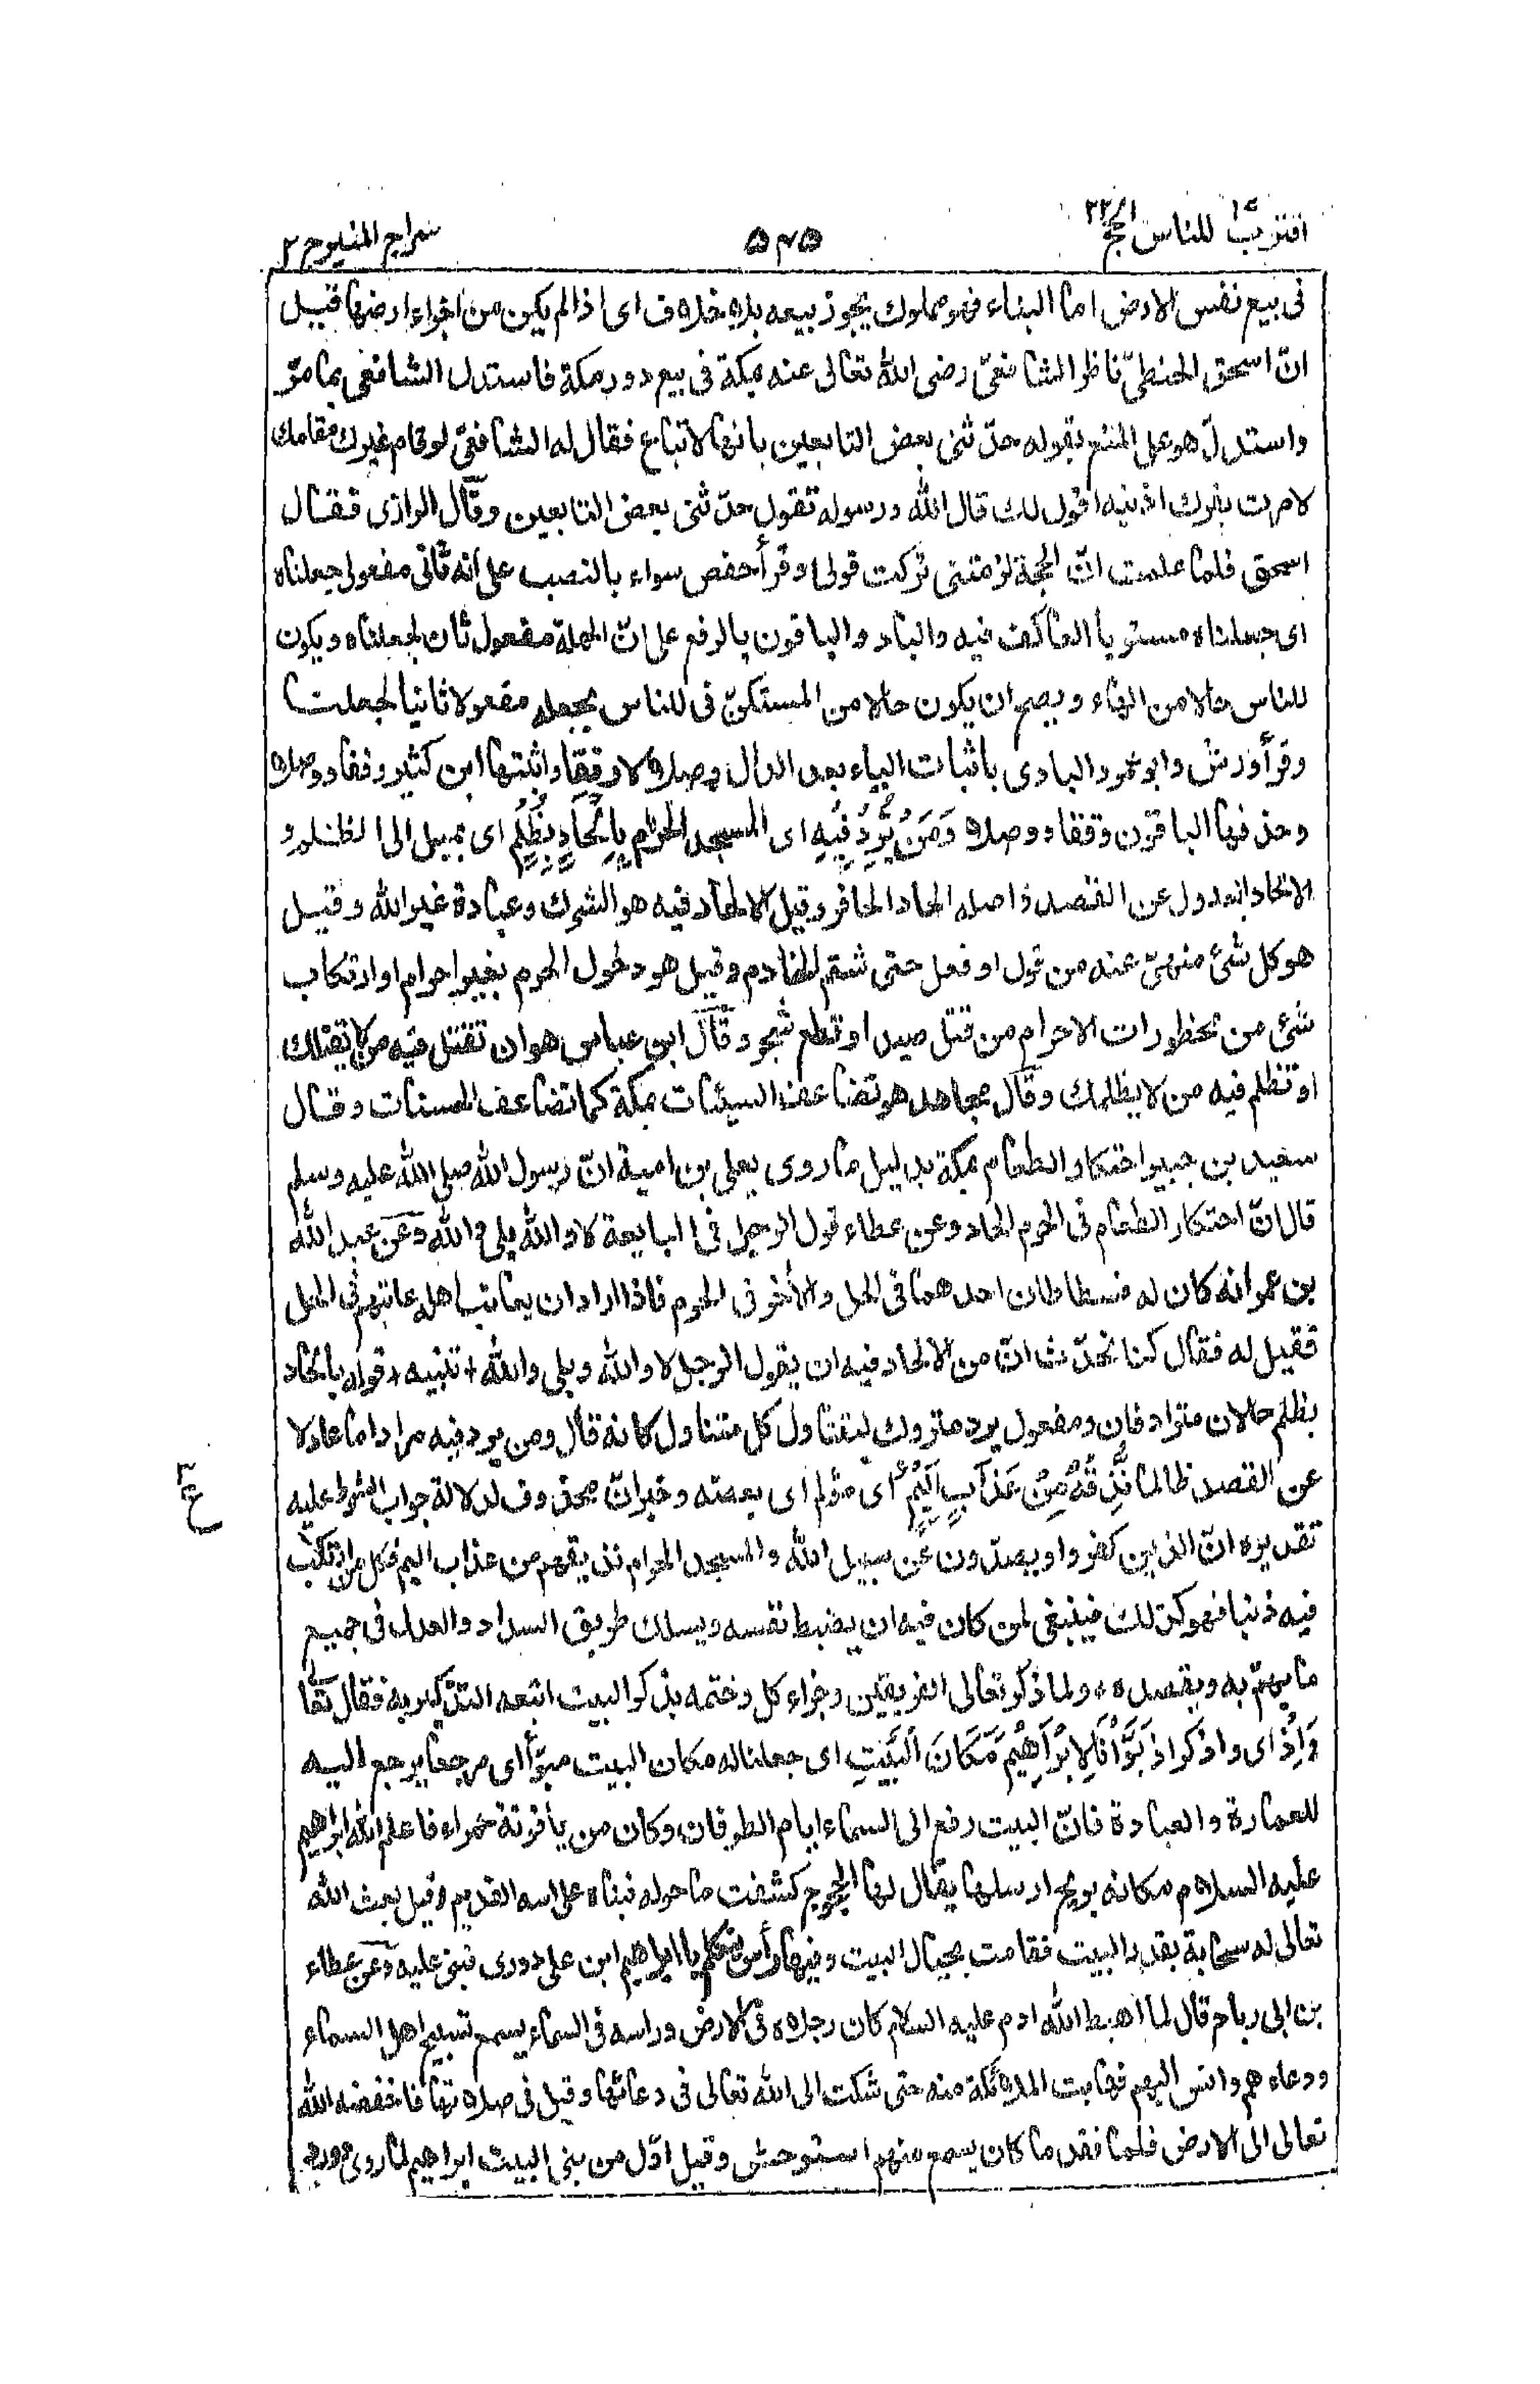 اقترب للناس ١٧ الحج ٢٢ ٥٤٥ سراج المنير ج ٢
فى بيع نفس الارض اما البناء فهو مملوك يجوز بيعه بلا خلاف اى اذا لم يكن من اجزاء ارضها قيل
انّ اسحق الحنظلىّ ناظر الشافعىّ رضى الله تعالى عنه بمكة فى بيع دور مكة فاستدل الشافعى بما مرّ
واستدلّ هو على المنع بقوله حدّثنى بعض التابعين بانها لاتباع فقال له الشافعىّ لوقام غيرك مقامك
لامرت بفرك اذنيه اقول لك قال الله ورسوله تقول حدّثنى بعض التابعين وقال الرازى فقال
اسحق فلما علمت انّ الحجة لزمتنى تركت قولى وقرأ حفص سواء بالنصب على انه ثانى مفعولى جعلناه
اى جعلناه مستويا العاكف فيه والباد والباقون بالرفع على انّ الجملة مفعول ثان لجعلناه ويكون
للناس حالا من الهاء ويصح ان يكون حالا من المستكنّ فى للناس بجعله مفعولا ثانيا لجعلت
وقرأ ورش وابو عمرو البادى باثبات الياء بعد الدال وصلا لا وقفا واثبتها ابن كثير وقفا ووصلا
وحذفها الباقون وقفا ووصلا وَمَنْ يُّرِدْ فِيْهِ اى المسجد الحرام بِاِلْحَادٍ بِظُلْمٍ اى بميل الى الظلم و
الالحاد العدول عن القصد واصله الحاد الحافر وقيل الالحاد فيه هو الشرك وعبادة غير الله وقيل
هو كل شئ منهىّ عنه من قول او فعل حتى شتم الخادم وقيل هو دخول الحرم بغير احرام او ارتكاب
شئ من محظورات الاحرام من قتل صيد او قطع شجر وقال ابن عباس هو ان تقتل فيه من لا يقتلك
او تظلم فيه من لا يظلمك وقال مجاهد هو تضاعف السيئات بمكة كما تضاعف الحسنات وقال
سعيد بن جبير احتكار الطعام بمكة بدليل ما روى يعلى بن امية انّ رسول الله صلى الله عليه وسلم
قال انّ احتكار الطعام فى الحرم الحاد وعن عطاء قول الرجل فى المبايعة لا والله بلى والله وعن عبد الله
بن عمر انه كان له فسطاطان احدهما فى الحل والأخر فى الحرم فاذا اراد ان يعاتب اهله عاتبهم فى الحل
فقيل له فقال كنا نحدّث انّ من الالحاد فيه ان يقول الرجل لا والله وبلى والله + تنبيه + قوله بالحاد
بظلم حالان مترادفان ومفعول يرد متروك ليتناول كل متناول كانه قال ومن يرد فيه مرادا ما عادلا
عن القصد ظالما نُّذِقْهُ مِنْ عَذَابٍ اَلِيْمٍ اى مؤلم اى بعضه وخبر انّ محذوف لدلالة جواب الشرط عليه
تقديره انّ الذين كفروا ويصدّون عن سبيل الله والمسجد الحرام نذيقهم من عذاب اليم فكل من ارتكب
فيه ذنبا فهو كذلك فينبغى لمن كان فيه ان يضبط نفسه ويسلك طريق السداد والعدل فى جميع
ما يهمّ به ويقصده + ولما ذكر تعالى الفريقين وجزاء كل وختمه بذكر البيت اتبعه التذكير به فقال تعا
وَاِذْ اى واذكر اذ بَوَّاْنَا لِاِبْرَاهِيْمَ مَكَانَ الْبَيْتِ اى جعلنا له مكان البيت مبوّأ اى مرجعا يرجع اليه
للعمارة والعبادة فانّ البيت رفع الى السماء ايام الطوفان وكان من ياقوتة حمراء فاعلم الله ابراهيم
عليه السلام مكانه بريح ارسلها يقال لها الخجوج كشفت ما حوله فبناه على اسه القديم وقيل بعث الله
تعالى له سحابة بقدر البيت فقامت بحيال البيت وفيها رأس يتكلم يا ابراهيم ابن على دورى فبنى عليه وعن عطاء
بن ابى رباح قال لما اهبط الله ادم عليه السلام كان رجلاه فى الارض وراسه فى السماء يسمع تسبيح اهل السماء
ودعاءهم وانس اليهم فهابت الملائكة منه حتى شكت الى الله تعالى فى دعائها وقيل فى صلاتها فاخفضه الله
تعالى الى الارض فلما فقد ما كان يسمع منهم استوحش وقيل اوّل من بنى البيت ابراهيم لما روى